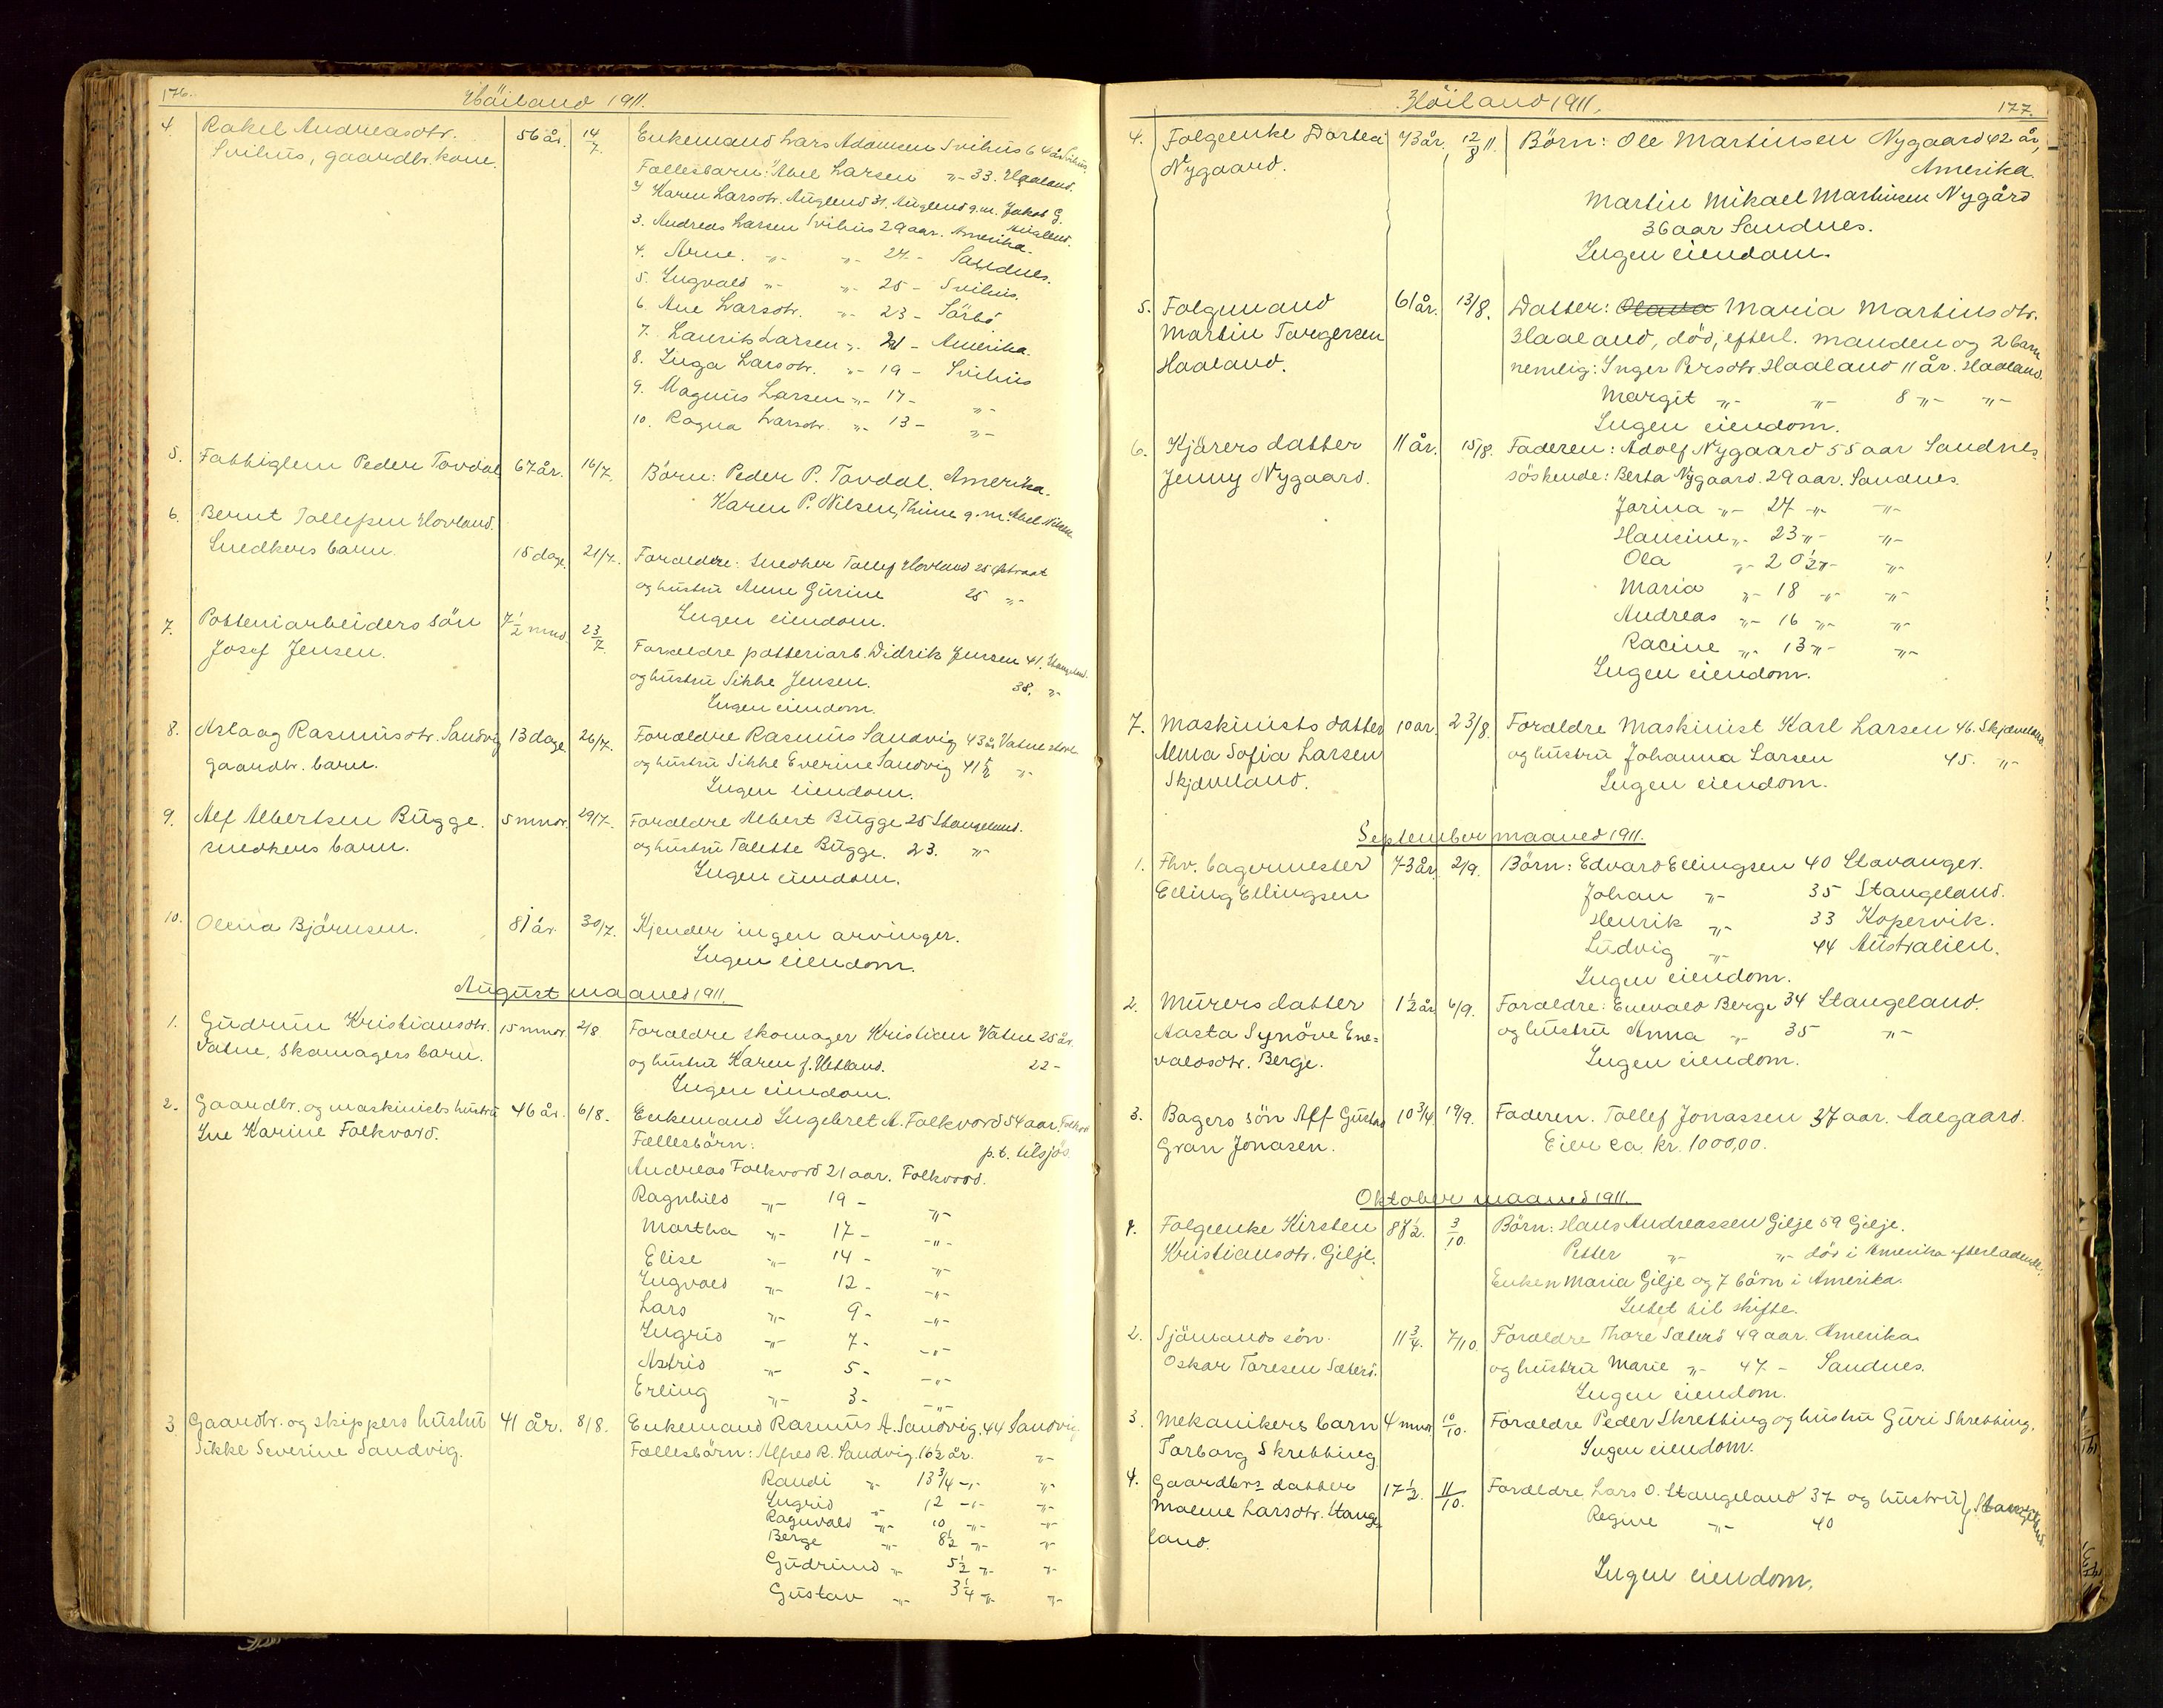 176.
Höiland 1911.
4. Rakel Andreasdtr. 56 år. 14/7 Enkemand Lars Adamsen Svihus 64 år Svihus.
Svihus, gaardbr. kone. Fællesbarn: Abel Larsen " 33. Haaland.
2 Karen Larsdtr. Auglend 31. Auglend g.m. Jakob G. Auglend.
3. Andreas Larsen Svihus 29 aar. Amerika.
4. Arne. " " 27 - Sandnes.
5. Ingvald " " 25 - Svihus.
6. Ane Larsdtr. " 23 - Sörbö
7. Laurits Larsen " 21 - Amerika.
8. Inga Larsdtr. " 19 - Svihus
9. Magnus Larsen " 17 - "
10. Ragna Larsdtr. " 13 - "
5. Fattiglem Peder Tovdal 67 år. 16/7. Börn: Peder P. Tovdal. Amerika.
Karen P. Nilsen, Thime g.m. Abel Nilsen
6. Bernt Tollefsen Hovland.
Snedkers barn. 15 dage. 21/7. Foræeldre: Snedker Tollef Hovland 25
og hustru Anne Gurine 25 "
Ingen eiendom.
7. Potteriarbeiders sön 7 1/2 mnd 23/7. Forældre potteriarb. Didrik Jensen 41. Stangeland.
Josef Jensen. og hustru Sikke Jensen. 38. "
Ingen eiendom.
8. Aslaug Rasmusdtr. Sandvig 13 dage. 26/7. Forældre Rasmus Sandvig 43 år Vatne
gaardbr. barn. og hustru Sikke Everine Sandvig 41 1/2 "
Ingen eiendom.
9. Alf Albertsen Bugge. 5 mndr. 29/7. Forældre Albert Bugge 25 Stangeland.
snedkers barn. og hustru Talette Bugge. 23. "
Ingen eiendom.
10. Olena Björnsen. 81 år. 30/7. Kjender ingen arvinger.
Ingen eiendom.
August maaned 1911.
1. Gudrun Kristiansdtr. 15 mndr. 2/8 Forældre skomager Kristian Vatne 25 år.
Vatne, skomagers barn. og hustru Karen f. Vetland. 22 -
Ingen eiendom.
2. Gaardbr. og maskinists hustru 46 år. 6/8. Enkemand Ingebret A. Folkvord 54 aar. Folkvord
Ine Karine Folkvord. Fællesbörn: p.t. tilsjös
Andreas Folkvord 21 aar. Folkvord.
Ragnhild " 19 - "
Martha " 17 - "
Elise " 14 - "
Ingvald " 12 - "
Lars " 9 - "
Ingrid " 7 - "
Astrid " 5 - "
Erling " 3 - "
3 Gaardbr. og skippers hustru 41 år. 8/8. Enkemand Rasmus A. Sandvig. 44 Sandvig
Sikke Severine Sandvig. Fællesbörn: Alfred R. Sandvig. 16 1/2 år. "
Randi " 13 3/4 " "
Ingrid " 12 " "
Ragnvald " 10 " "
Berge " 8 1/2 " "
Gudrund " 5 1/2 " "
Gustav " 3 1/4 " "
Höiland 1911.
177.
4. Folgeenke Dortea 73 år. 12/8 11. Börn: Ole Martinsen Nygaard 42 år,
Nygaard. Amerika.
Martin Mikael Martinsen Nygård
36 aar Sandnes.
Ingen eiendom.
5. Folgemand 61 år. 13/8. Datter: Olava Maria Martinsdtr.
Martin Torgersen Haaland, död, efterl. manden og 2 barn
Haaland. nemlig: Inger Persdtr. Haaland 11 år. Haaland.
Margit " " 8 " "
Ingen eiendom.
6. Kjörers datter 11 år. 15/8. Faderen: Adolf Nygaard 55 aar Sandnes
Jenny Nygaard. söskende: Berta Nygaard. 29 aar. Sandnes.
Jorina " 27 " "
Hansine " 23 " "
Ola " 20 1/2 " "
Maria " 18 " "
Andreas " 16 " "
Racine " 13 " "
Ingen eiendom.
7. Maskinists datter 10 ar. 23/8. Forældre Maskinist Karl Larsen 46. Skjæveland.
Alma Sofia Larsen og hustru Johanna Larsen 45. "
Skjæveland. Ingen eiendom.
September maaned 1911.
1. Fhv. bagermester 73 år 2/9. Börn: Edvard Ellingsen 40 Stavanger.
Elling Ellingsen Johan " 35 Stangeland.
Henrik " 33 Kopervik.
Ludvig " 44 Australien.
Ingen eiendom.
2. Murers datter 1 1/2 år 6/9. Forældre: Enevald Berge 34 Stangeland.
Aasta Synöve Ene= og hustru Anna " 35 "
valdsdtr. Berge. Ingen eiendom.
3. Bagers sön Alf Gustav 10 3/4 19/9. Faderen. Tollef Jonassen 37 aar. Aalgaard.
Gran Jonasen. Eier ca. kr. 1000,00.
Oktober maaned 1911.
1. Folgeenke Kirsten 87 1/2. 3/10. Börn: Hans Andreassen Gilje 59 Gilje.
Kristiansdtr. Gilje. Petter " " död i Amerika efterladende.
Enken Maria Gilje og 7 börn i Amerika.
Intet til skifte.
2. Sjömands sön. 11 3/4. 7/10. Forældre Thore Sælerd 49 aar. Amerika
Oskar Toresen Sælerd. og hustru Marie " 47 - Sandnes.
Ingen eiendom.
3. Mekanikers barn 4 mndr 10/10. Forældre Peder Skretting og hustru Guri Skretting.
Torborg Skretting Ingen eiendom.
4. Gaardbrs datter 17 1/2. 11/10. Forældre Lars O. Stangeland 37 og hustru } Stangeland.
Malene Larsdtr. Stange Regine " 40
land.
Ingen eiendom.